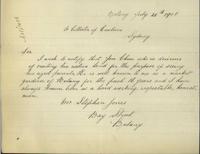 Botany July 20th 1908
to Collector of Customs
Sydney
Sir
I wish to certify that Jon Chan who is desirous
of visiting his native land for the purpose of seeing
his aged parents. He is well known to me as a market
gardener of Botany for the past 16 years and I have
always known him as a hard working, respectable, honest
man.
Mr Stephen Jones
Bay Street
Botany